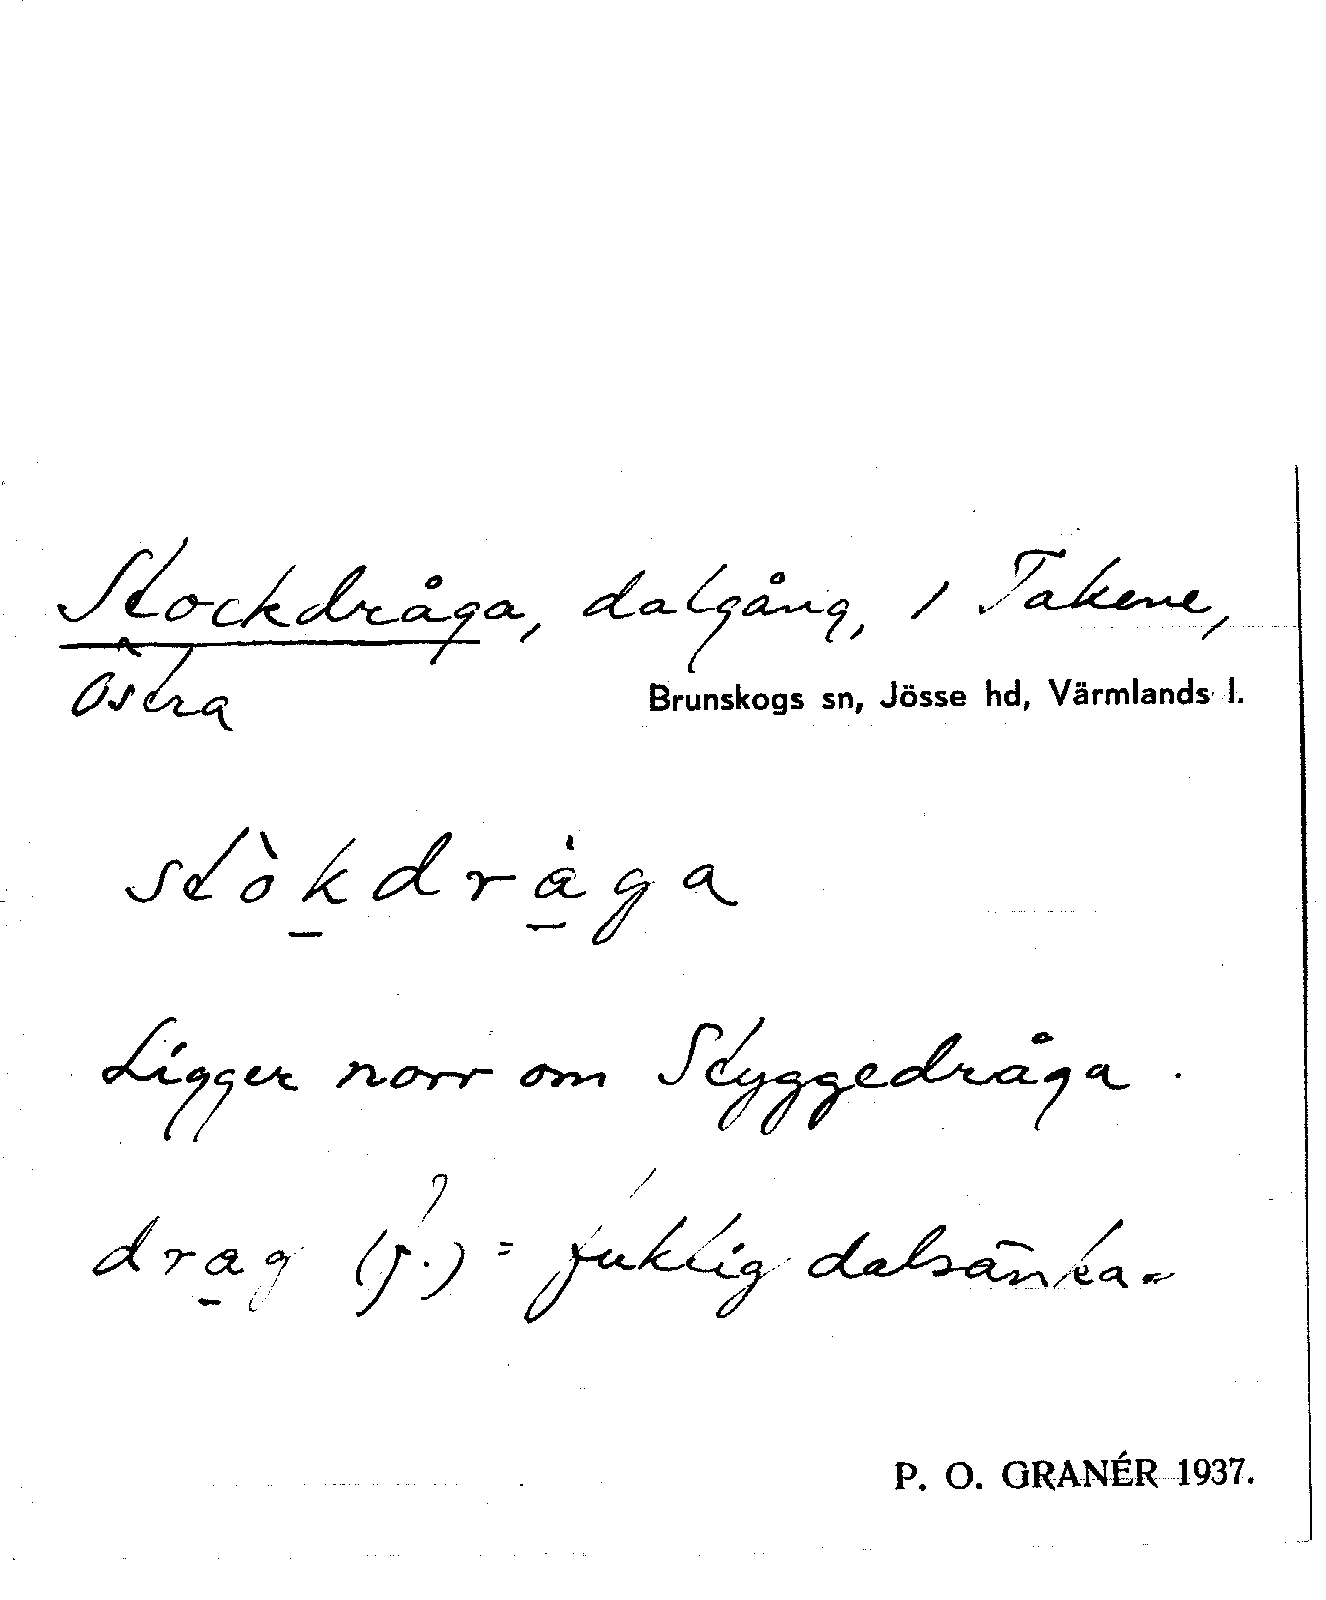 Stockdråga, dalgång, i Takene,
Östra
Brunskogs sn, Jösse hd, Värmlands l.
stòk̲drå̲ga
Ligger norr om Styggedråga.
dra̲g (f.) = fuktig dalsänka.
P. O. GRANÉR 1937.